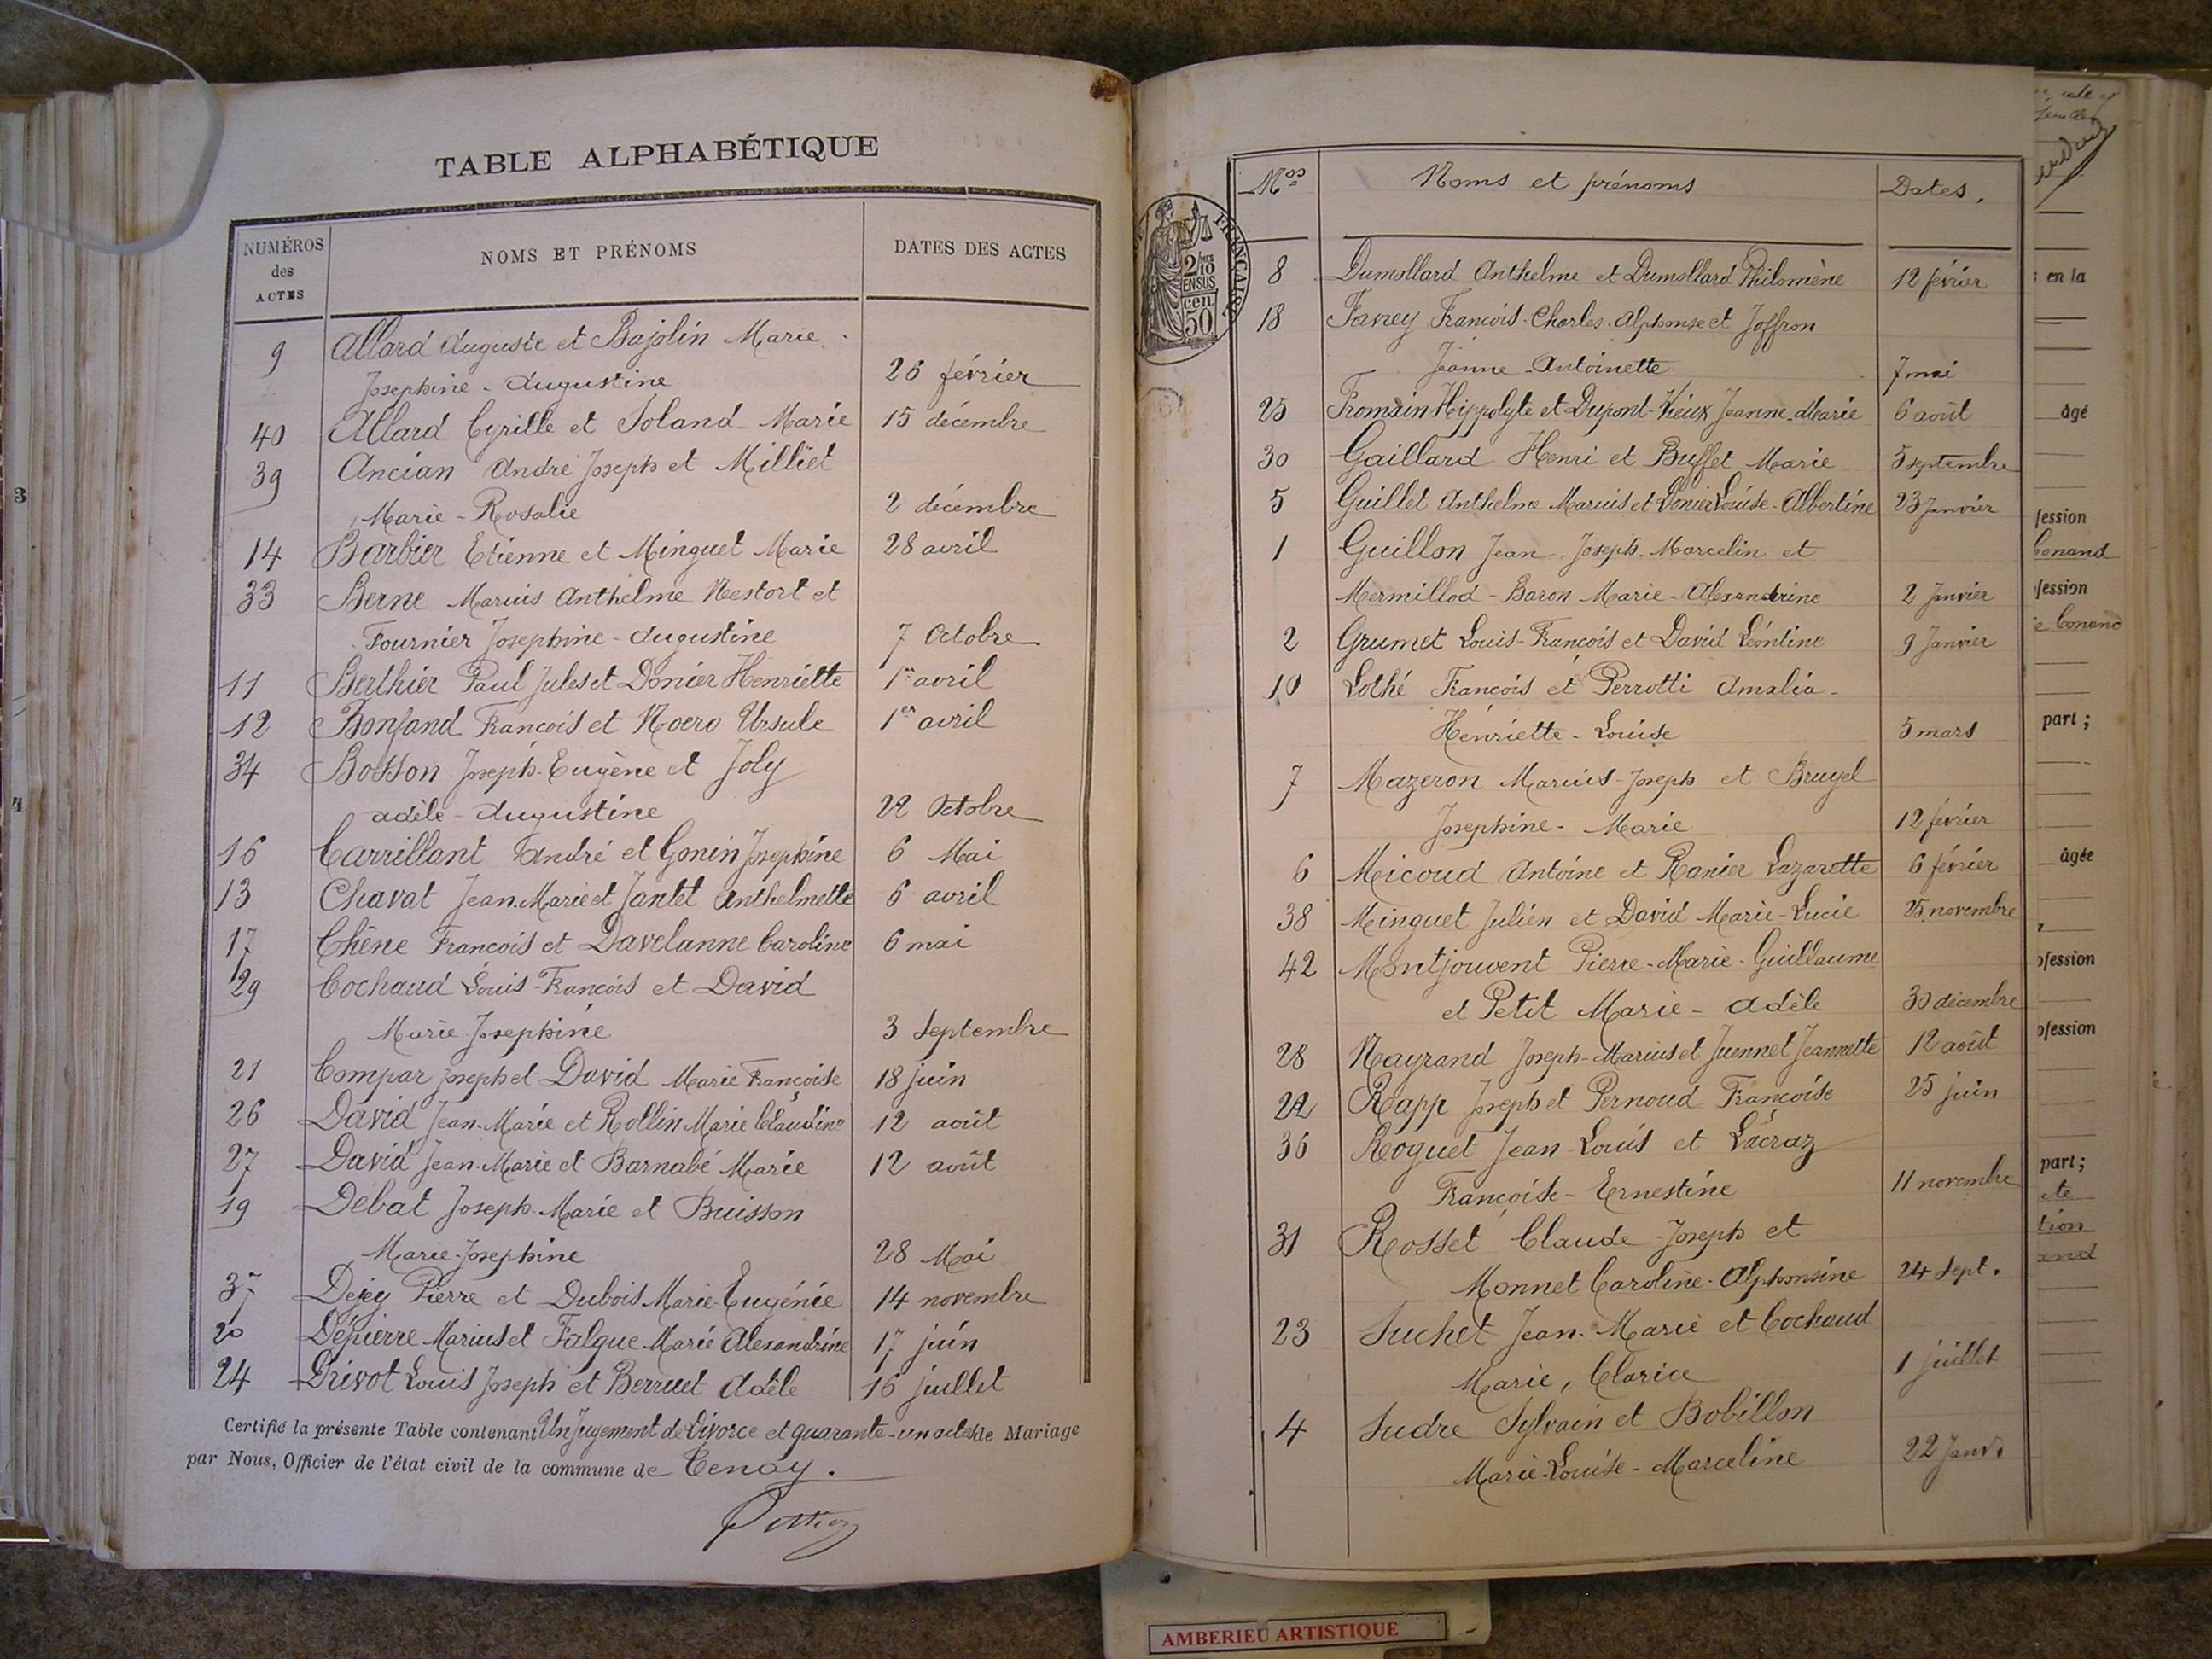 TABLE ALPHABÉTIQUE
NUMÉROS des ACTES
NOMS ET PRÉNOMS
DATES DES ACTES
9 Allard Auguste et Bajolin Marie
Josephine - Augustine 26 février
40 Allard Cyrille et Soland Marie 15 décembre
39 Ancian André Joseph et Milliet
Marie - Rosalie 2 décembre
14 Barbier Etienne et Minguet Marie 28 avril
33 Berne Marius Anthelme Nestort et
Fournier Josephine - Augustine 7 Octobre
11 Berthier Paul Jules et Donier Henriette 1er avril
12 Bonfand François et Noero Ursule 1er avril
34 Bosson Joseph-Eugène et Joly
adèle - Augustine 22 Octobre
16 Carrillant André et Gonin Josephine 6 Mai
13 Chavat Jean-Marie et Jantet Anthelmette 6 avril
17 Chêne François et Davelanne Caroline 6 mai
29 Cochaud Louis-François et David
Marie Josephine 3 Septembre
21 Compar Joseph et David Marie Françoise 18 juin
26 David Jean-Marie et Rollin Marie Claudine 12 août
27 David Jean-Marie et Barnabé Marie 12 août
19 Débat Joseph-Marie et Buisson
Marie-Josephine 28 Mai
37 Dejey Pierre et Dubois Marie-Eugénie 14 novembre
20 Dépierre Marius et Falque Marie Alexandrine 17 juin
24 Drivot Louis Joseph et Berruet Adèle 16 juillet
Certifié la présente Table contenant Un Jugement de Divorce et quarante-un actes de Mariage
par Nous, Officier de l'état civil de la commune de Tenay.
Nos Noms et prénoms Dates.
FRANÇAISE
2/10
EN SUS
50 cen
8 Dumollard Anthelme et Dumollard Philomène 12 février
18 Favey François-Charles-Alphonse et Joffron
Jeanne-Antoinette 7 mai
25 Fromain Hippolyte et Dupont-Vieux Jeanne-Marie 6 août
30 Gaillard Henri et Buffet Marie 5 septembre
5 Guillet Anthelme Marius et Donier Louise-Albertine 23 Janvier
1 Guillon Jean-Joseph-Marcelin et
Mermillod-Baron Marie-Alexandrine 2 Janvier
2 Grumet Louis-François et David Léontine 9 Janvier
10 Lothé François et Perrotti Amalia-
Henriette-Louise 5 mars
7 Mazeron Marius-Joseph et Bruyel
Josephine-Marie 12 février
6 Micoud Antoine et Ranier Lazarette 6 février
38 Minguet Julien et David Marie-Lucie 25 novembre
42 Montjouvent Pierre-Marie-Guillaume
et Petit Marie-Adèle 30 décembre
28 Nayrand Joseph-Marius et Juennet Jeannette 12 août
22 Rapp Joseph et Pernoud Françoise 25 juin
36 Roguet Jean-Louis et Lacraz
Françoise-Ernestine 11 novembre
31 Rosset Claude-Joseph et
Monnet Caroline-Alphonsine 24 Sept.
23 Suchet Jean-Marie et Cochaud
Marie, Clarice 1 juillet
4 Sudre Sylvain et Bobillon
Marie-Louise-Marceline 22 Janv.
en la
âgé
fession
Conand
fession
Conand
part;
âgée
ofession
ofession
part;
te
tion
and
3
4
AMBERIEU ARTISTIQUE